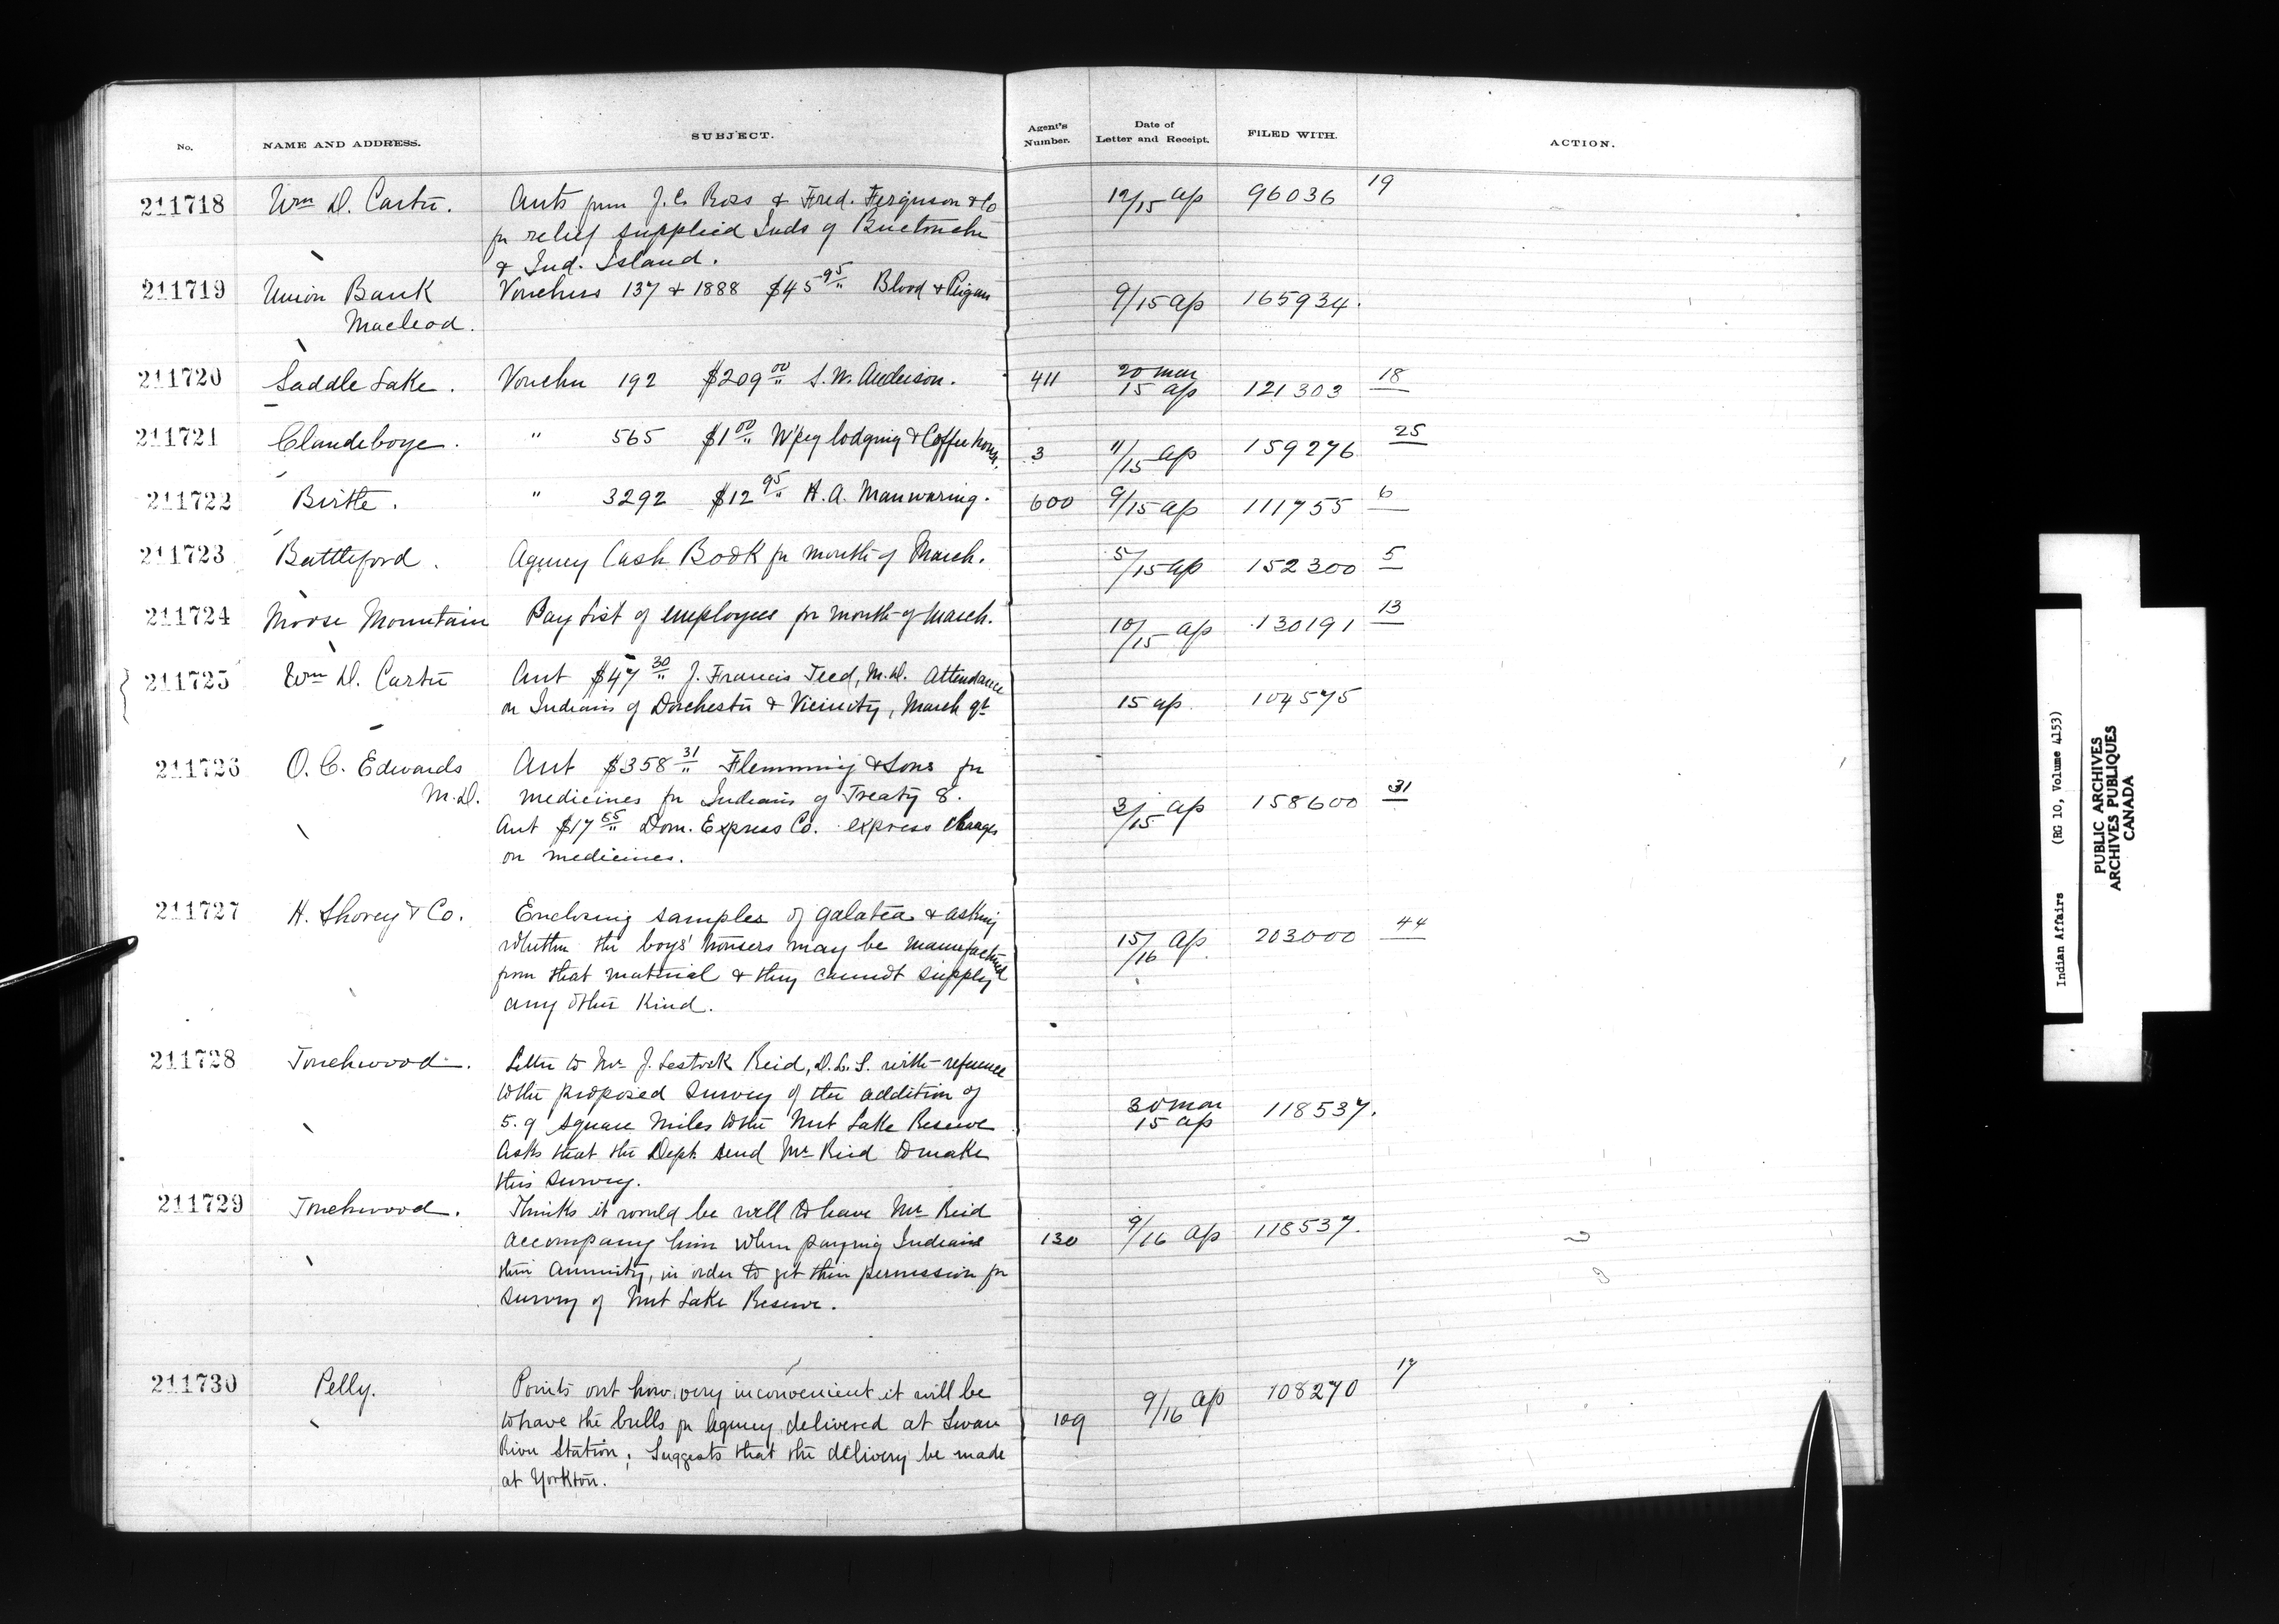 No. NAME AND ADDRESS. SUBJECT. Agent's Number. Date of Letter and Receipt. FILED WITH. ACTION.
211718 Wm D. Carter. Accts from J. C. Ross & Fred. Ferguson & Co 12/15 ap 96036 19
for relief supplied Inds of Buctouche
& Ind. Island.
211719 Union Bank Vouchers 137 & 1888 $45 95 Blood & Peigan 9/15 ap 165934.
Macleod.
211720 Saddle Lake. Voucher 192 $209 00 S. W. Anderson. 411 20 mar 15 ap 121303 18
211721 Clandeboye. " 565 $1 00 W'peg lodging & Coffee house. 3 11/15 ap 159276 25
211722 Birtle. " 3292 $12 95 H. A. Manwaring. 600 9/15 ap 111755 6
211723 Battleford. Agency Cash Book for month of March. 5/15 ap 152300 5
211724 Moose Mountain Pay List of employees for month of March. 10/15 ap 130191 13
211725 Wm D. Carter Acct $47 30 J. Francis Teed, M.D. Attendance
on Indians of Dorchester & Vicinity, March qt 15 ap. 104575
211726 O. C. Edwards Acct $358 31 Flemming & Sons for
M.D. medicines for Indians of Treaty 8. 3/15 ap 158600 31
Acct $17 65 Dom. Express Co. express charges
on medicines.
211727 H. Shorey & Co. Enclosing samples of galatea & asking
whether the boys' trousers may be manufactured 15/16 ap. 203000 44
from that material & they cannot supply
any other kind.
211728 Touchwood. Letter to Mr J. Lestock Reid, D.L.S. with reference
to the proposed survey of the addition of
5.9 square miles to the Nut Lake Reserve 30 mar 15 ap 118537.
Asks that the Dept. send Mr Reid to make
this survey.
211729 Touchwood. Thinks it would be well to have Mr Reid
accompany him when paying Indians 130 9/16 ap 118537.
their annuity, in order to get their permission for
survey of Nut Lake Reserve.
211730 Pelly. Points out how very inconvenient it will be 9/16 ap 108270 17
to have the bulls for agency delivered at Swan 109
River Station; Suggests that the delivery be made
at Yorkton.
Indian Affairs (RG 10, Volume 4153)
PUBLIC ARCHIVES
ARCHIVES PUBLIQUES
CANADA